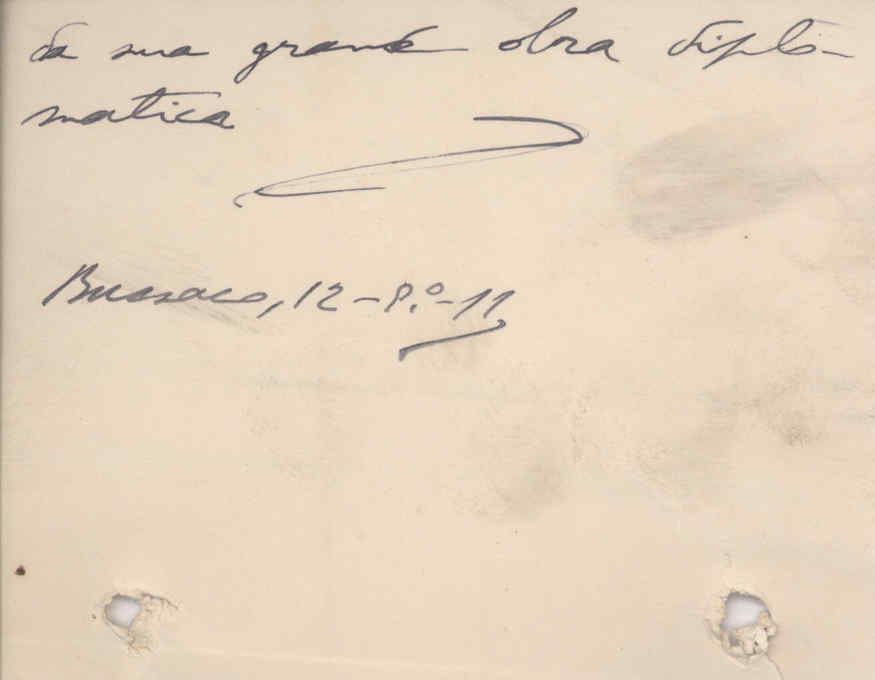 da sua grande obra diplo-
matica
Bussaco, 12-8.º-11